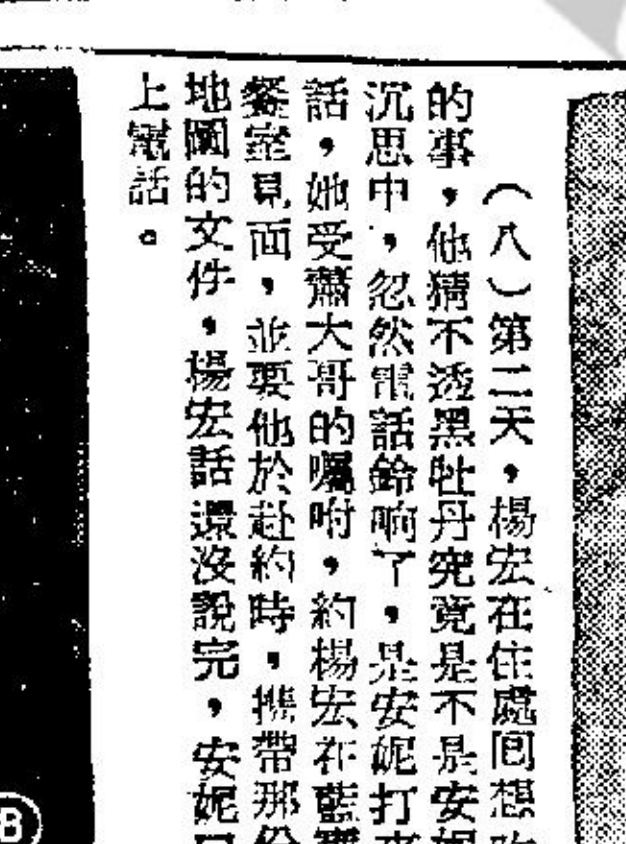 （八）第二天，楊宏在住處回想昨
的事，他猜不透黑牡丹究竟是不是安妮
沉思中，忽然電話鈴响了，是安妮打來
話，她受蕭大哥的囑咐，約楊宏在藍寶
餐室見面，並要他於赴約時，携帶那份
地圖的文件，楊宏話還沒說完，安妮已
上電話。